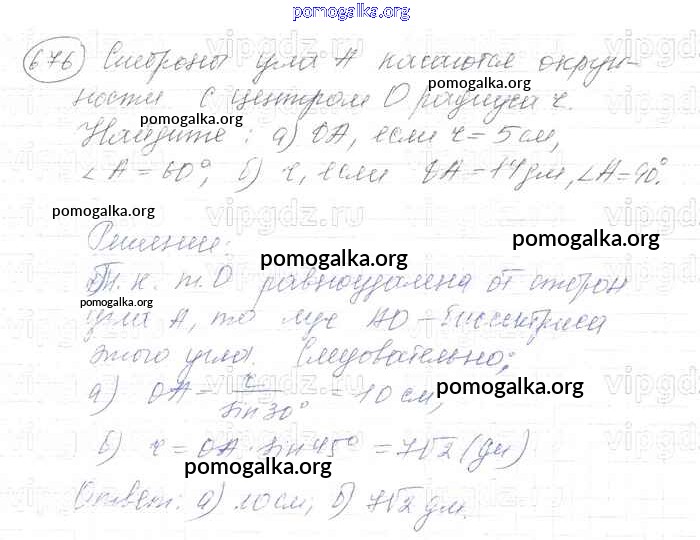 pomogalka.org
676 Стороны угла А касаются окруж-
pomogalka.org
ности с центром O радиуса r.
pomogalka.org
Найдите: а) OA, если r = 5 см,
∠A = 60°; б) r, если OA = 14 дм, ∠A = 90°.
pomogalka.org
Решение:
pomogalka.org
pomogalka.org
Т. к. т. O равноудалена от сторон
pomogalka.org
угла А, то луч AO – биссектриса
этого угла. Следовательно;
а) OA = r / sin 30° = 10 см;
pomogalka.org
б) r = OA · sin 45° = 7√2 (дм)
pomogalka.org
Ответ: а) 10 см; б) 7√2 дм.